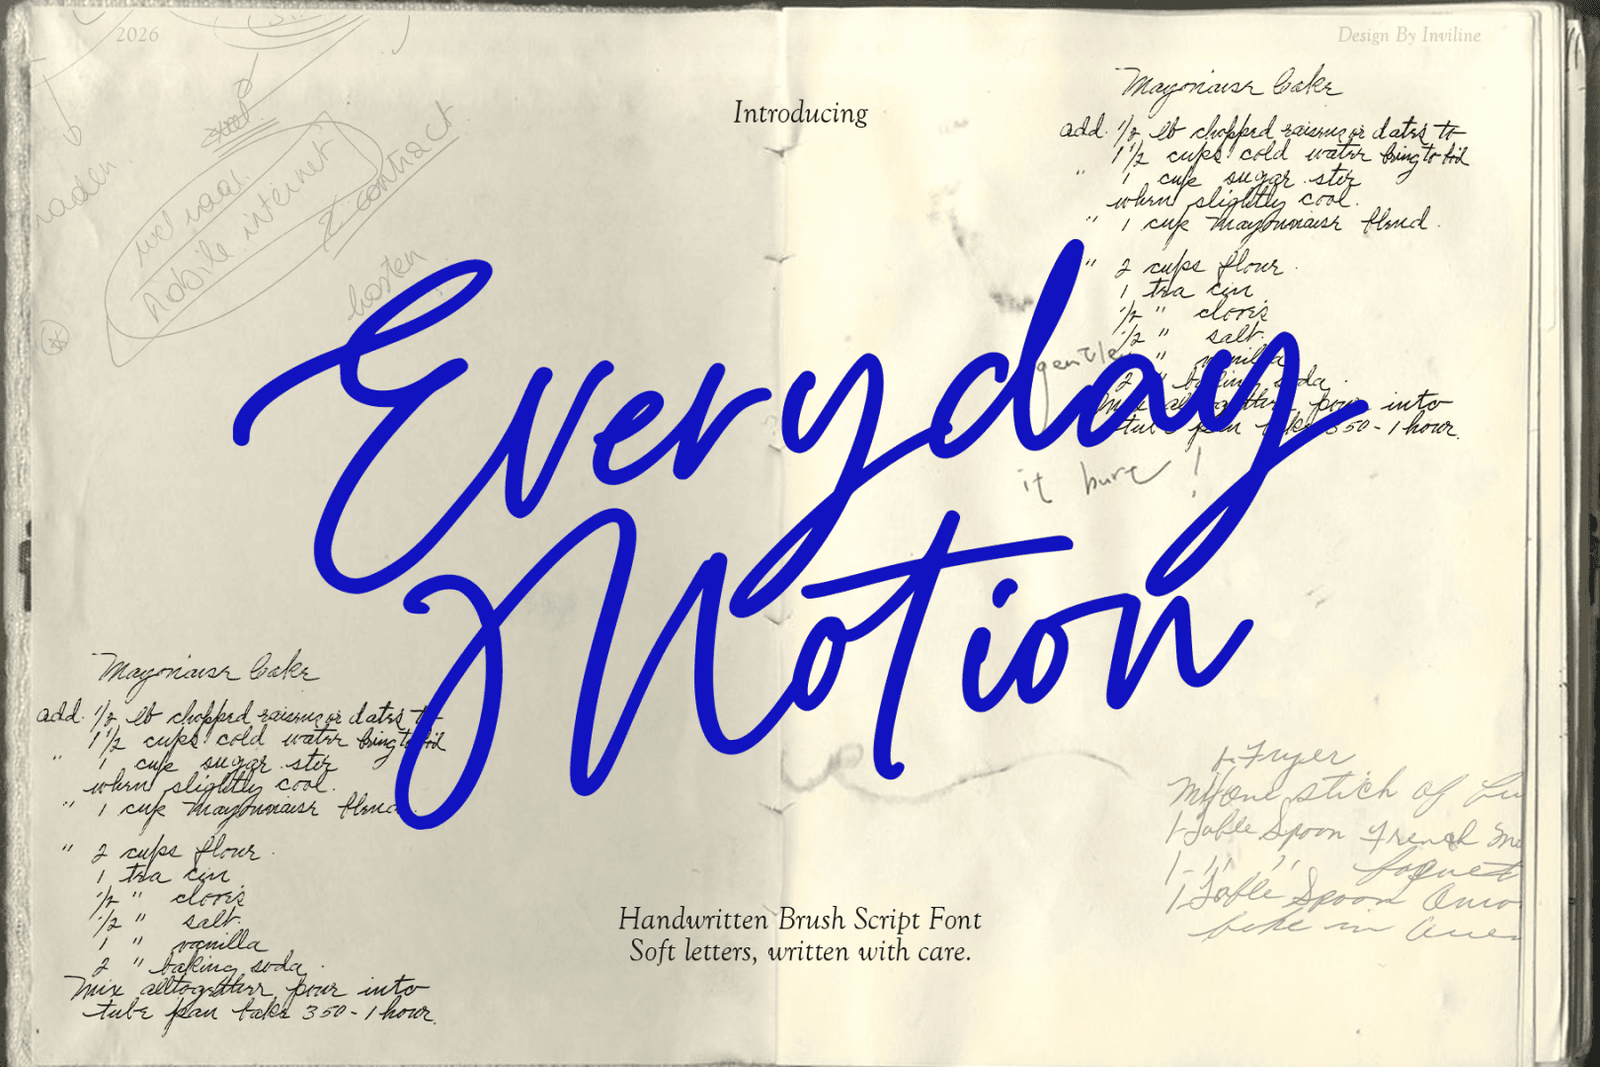 2026
Design By Inviline
Introducing
wel naar
mobile internet
contract
kosten
Mayonaise Cake
add. 1/2 lb chopped raisins or dates to
1 1/2 cups cold water bring to boil
" 1 cup sugar stir
when slightly cool.
" 1 cup mayonnaise blend.
" 2 cups flour
1 tea cin
1/2 " cloves
1/2 " salt.
" vanilla
2 " baking soda.
mix alltogether pour into
tube pan bake 350 - 1 hour.
gentle
it burc !
Everyday
Motion
Mayonaise Cake
add. 1/2 lb chopped raisins or dates to
1 1/2 cups cold water bring to boil
" 1 cup sugar stir
when slightly cool.
" 1 cup mayonnaise blend.
" 2 cups flour
1 tea cin
1/2 " cloves
1/2 " salt.
1 " vanilla
2 " baking soda.
mix alltogether pour into
tube pan bake 350 - 1 hour.
Fryer
one stick of
1 Table Spoon French
1 - " "
1 Table Spoon
bake in
Handwritten Brush Script Font
Soft letters, written with care.